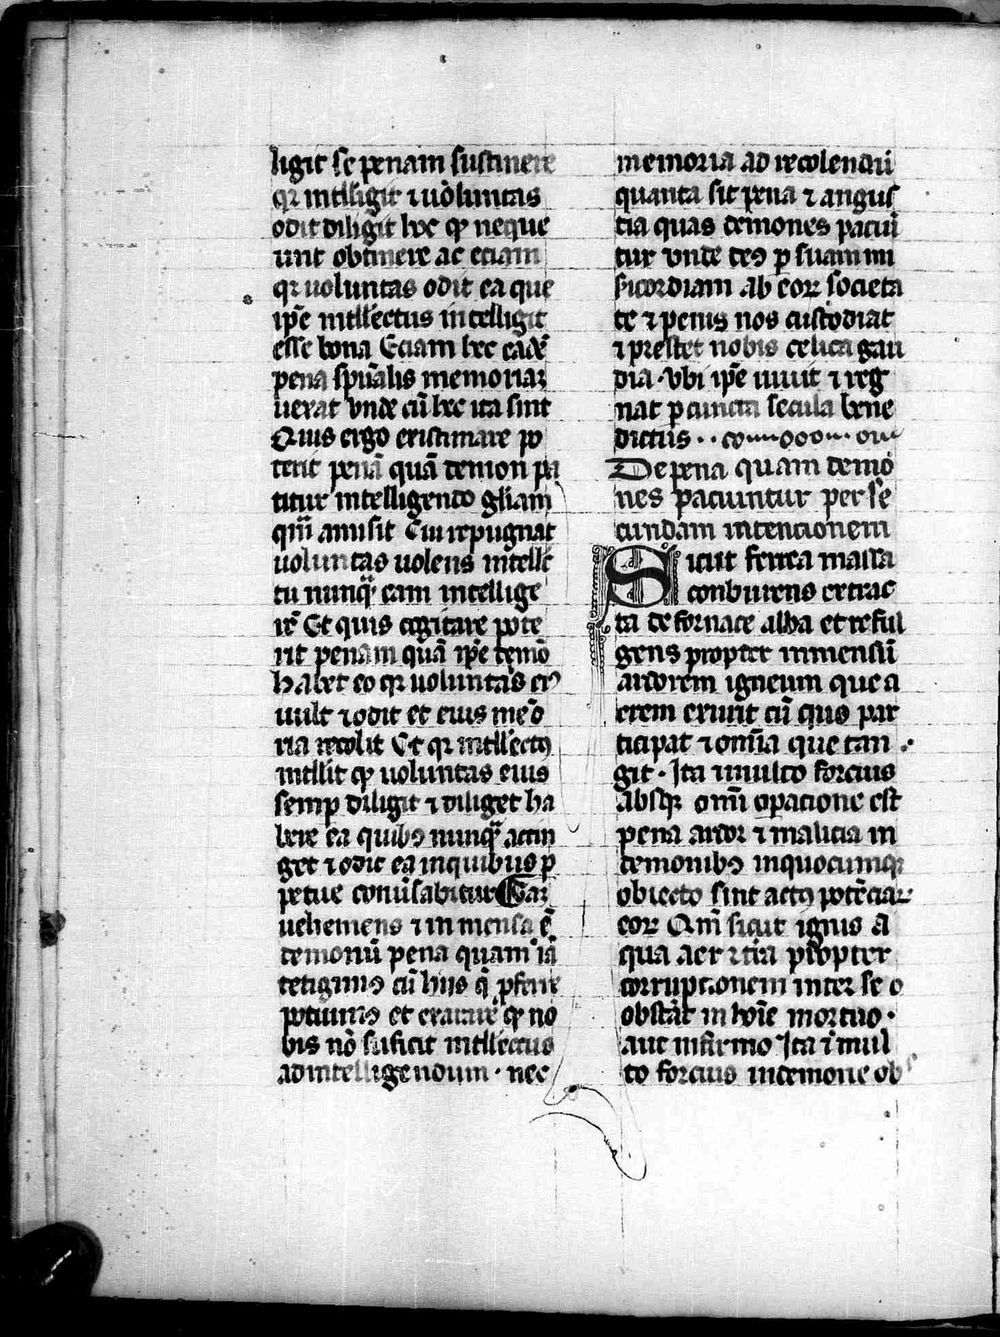 ligit se penam sustinere
qꝛ intelligit ⁊ uoluntas
odit diligit hec ꝙ neque
unt obtinere ac eciam
qꝛ uoluntas odit ea que
ip̃e intll̃ectus intelligit
esse bona Eciam hec eadẽ
pena sp̃ualis memoriaꝫ
uexat vnde cũ hec ita sint
Quis ergo existimare po
terit penã quã demon pa
titur intelligendo gl̃iam
qm̃ amisit Cui repugnat
uoluntas uolens intellc̃
tu nunqᷓ eam intellige
re᷑ Et quis cogitare pote
rit penam quã ip̃e demõ
habet eo qꝛ uoluntas eiꝰ
uult ⁊ odit et eius me᷑o
ria recolit Et qꝛ intllectꝰ
intllit ꝙ uoluntas eius
semp diligit ⁊ diliget ha
bere ea quibꝰ nunqᷓ attin
get ⁊ odit ea inquibus p̲
petue conũsabitur Taꝫ
uehemens ⁊ inmensa ẽ
demonũ pena quam iã
tetigimꝰ cũ hiis q̃ pferre
potuimꝰ et exarare ꝙ no
bis nõ suficit intllectus
adintelligendum · nec
memoria ad recolendũ
quanta sit pena ⁊ angus
tia quas demones paciũ
tur vnde deꝰ p suam mi
sicordiam ab eoꝝ societa
te ⁊ penis nos custodiat
⁊ prestet nobis celica gau
dia · vbi ip̃e uiuit ⁊ reg
nat p cuncta secula bene
dictus · ·
De pena quam demo
nes paciuntur per se
cundam intencionem
Sicut ferrea massa
conburens extrac
ta de fornace alba et reful
gens propter inmensũ
ardorem igneum que a
erem exurit cũ quo par
ticipat ⁊ om̃ia que tan
git · Ita multo forcius
absqꝫ om̃i opacione est
pena ardor ⁊ malicia in
demonibꝰ inquocumqꝫ
obiecto sint actꝰ potẽciaꝝ
eoꝝ Qm̃ sicut ignis a
qua aer ⁊ tr̃a propter
corrupcionem inter se o
obstãt in hoĩe mortuo ·
aut infirmo Ita ĩ mul
to forcius indemone obs